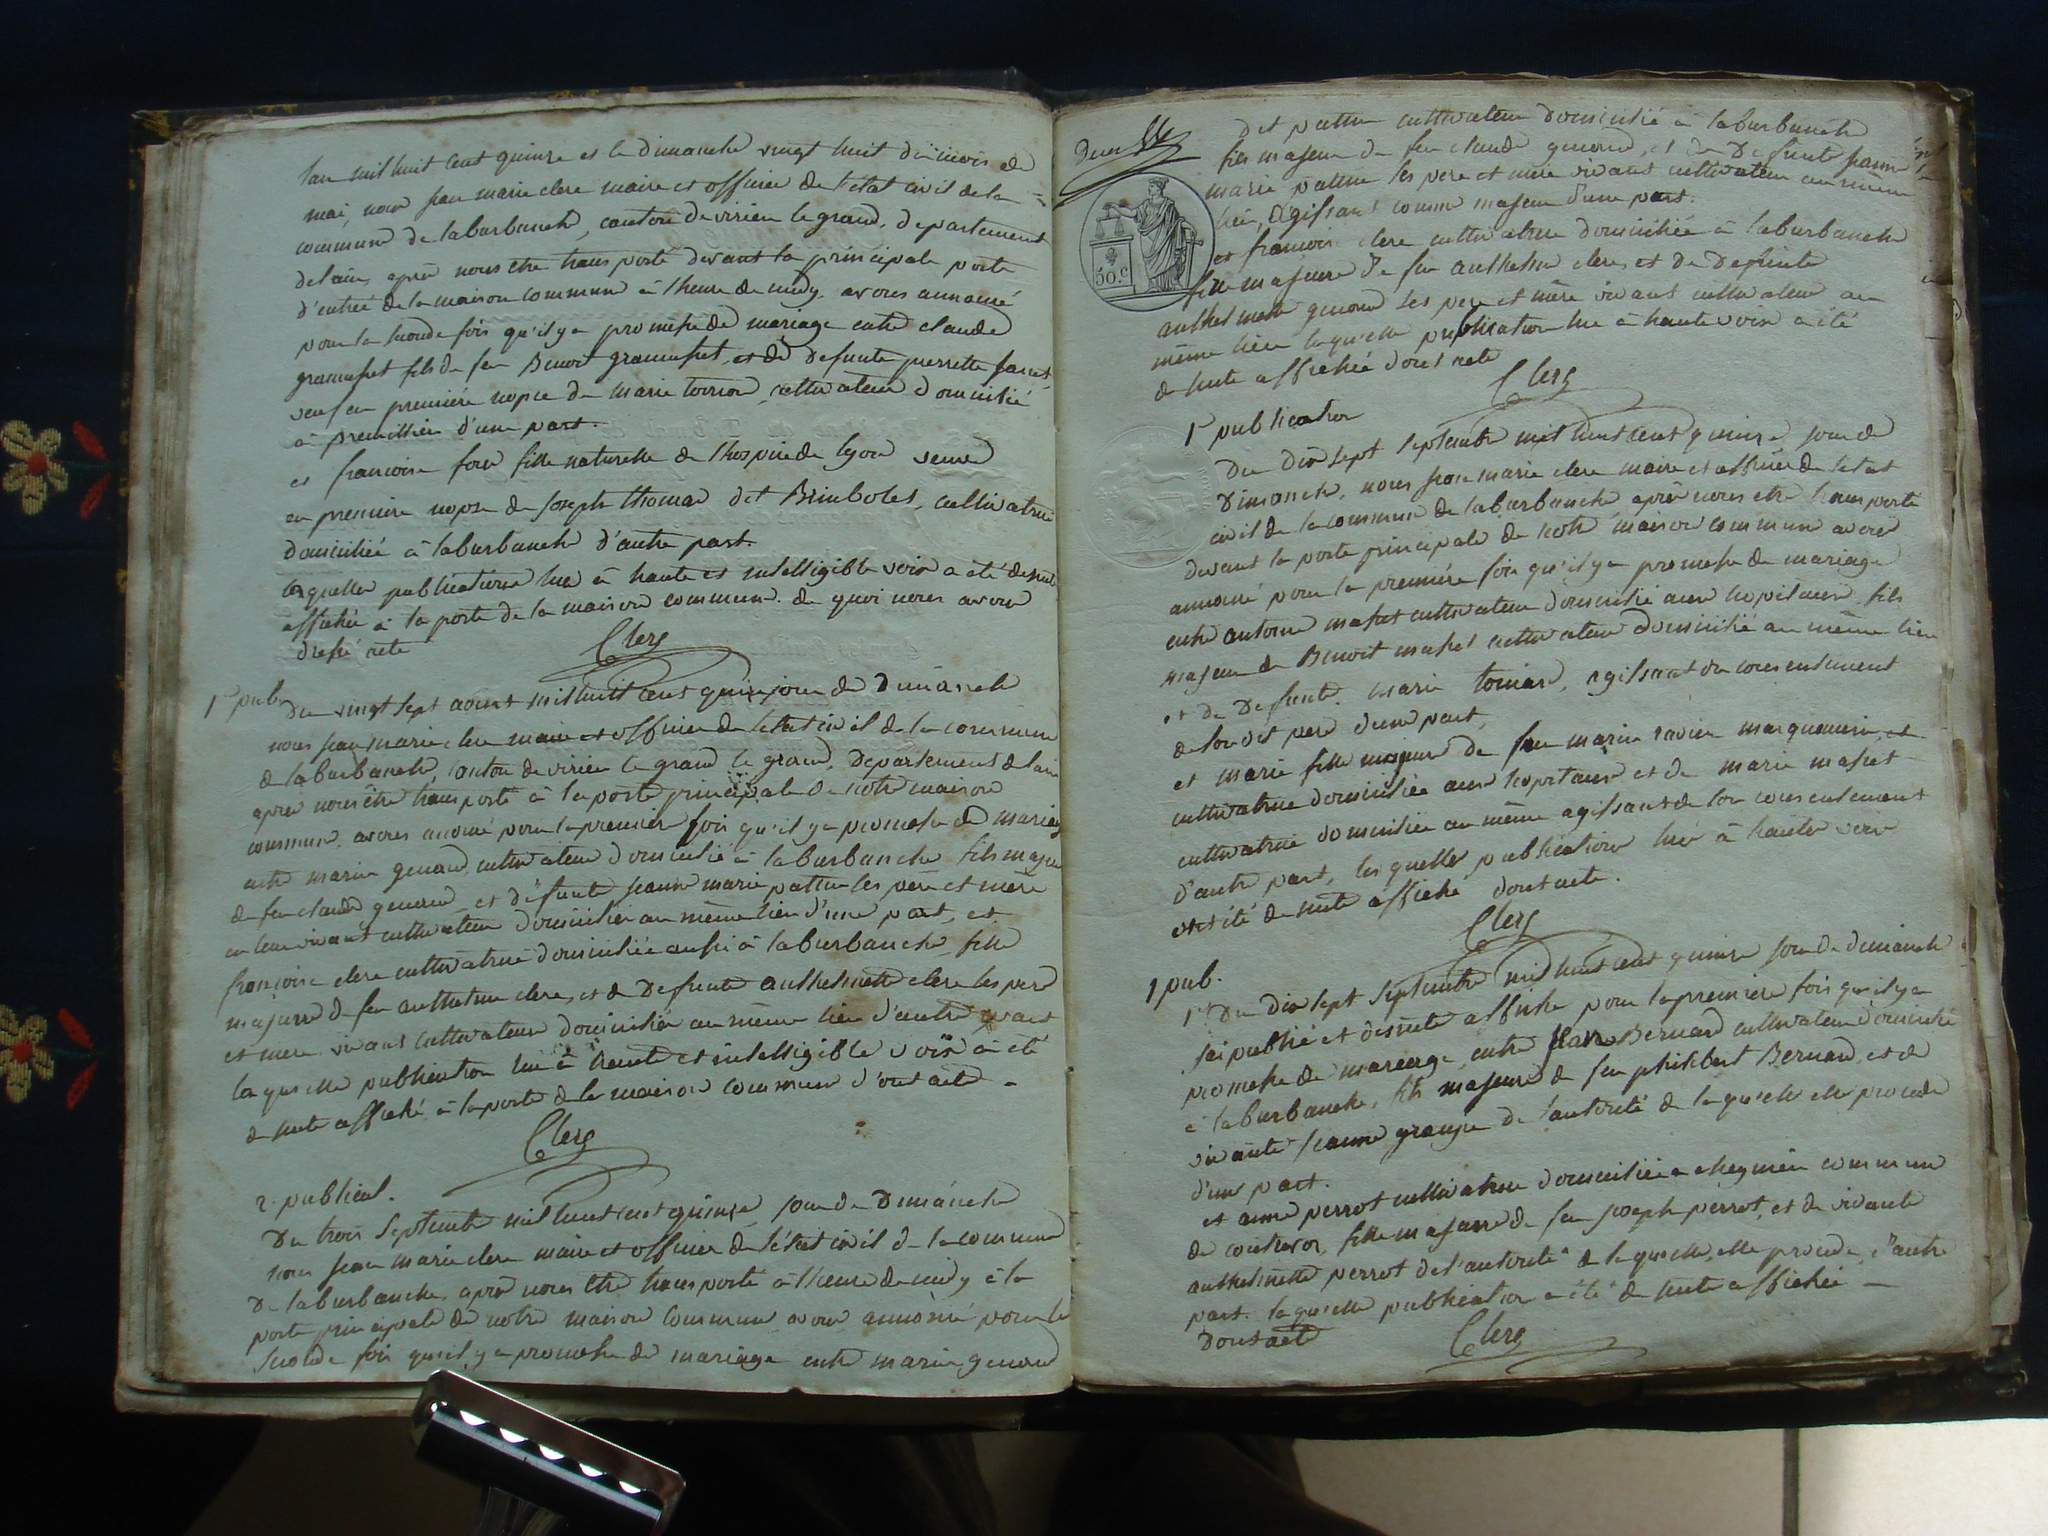 lan mil huit cent quinze et le dimanche vingt huit du mois de
mai, nous jean marie clerc maire et officier de l'état civil de la
commune de laburbanche, canton de virieu le grand, departement
de lain, après nous etre transporté devant la principale porte
d'entrée de la maison commune à l'heure de midy avons annoncé
pour la seconde fois qu'il y a promesse de mariage entre claude
fils de feu Benoit et de defunte pierrette
veuf en première nopce de marie cultivateur domicilié
à premillieu d'une part.
et francoise fille naturelle de l'hospice de lyon veuve
en premiere nopce de joseph thomas dit Brimboles, cultivatrice
domiciliée à laburbanche d'autre part.
lesquelles publications lue à haute et intelligible voix a été de suite
affichée à la porte de la maison commune. de quoi nous avons
dressé acte
Clerc
1r pub.
Du vingt sept aoust mil huit cent quinze jour de Dimanche
nous jean marie clerc maire et officier de l'état civil de la commune
de laburbanche, canton de virieu le grand le grand, departement de lain
apres nous etre transporté à la porte principale de notre maison
commune, avons anoncé pour la premiere fois qu'il y a promesse de mariage
entre marin genoud cultivateur domicilié à laburbanche fils majeur
de feu claude genoud et defunte jeanne marie pattin les père et mère
en leur vivant cultivateur domiciliés au même lieu d'une part, et
françoise clerc cultivatrice domiciliée aussi à laburbanche fille
majeure de feu anthelme clerc, et de Defunte anthelmette clerc les pere
et mere vivant cultivateur domiciliés au même lieu d'autre part
la quelle publication lue à haute et intelligible voix à été
de suite affiché à la porte de la maison commune d'ont acte -
Clerc
2. publicat.
Du trois septembre mil huit cent quinze jour de Dimanche
nous jean marie clerc maire et officier de l'état civil de la commune
De laburbanche, après nous etre transporté à l'heure de midy à la
porte principale de notre maison commune avons annoncé pour la
seconde fois qu'il y a promesse de mariage entre marin genoud
dit pattin cultivateur domicilié à laburbanche
fils majeur de feu claude genoud, et de Defunte jeanne
marie pattin les pere et mere vivant cultivateur au même
lieu, agissant comme majeur d'une part.
50.c
et francoise clerc cultivatrice domiciliée à laburbanche
fille majeure de feu anthelme clerc et de Defunte
anthelmette genoud les pere et mère vivant cultivateur au
même lieu laquelle publication lue à haute voix a été
de suite affichée dont acte
Clerc
1r publication
Du dix sept septembre mil huit cent quinze jour de
Dimanche, nous jean marie clerc maire et officier de l'état
civil de la commune de laburbanche après nous etre transporté
devant la porte principale de notre maison commune avons
annoncé pour la première fois qu'il y a promesse de mariage
entre antoine masset cultivateur domicilié aux hopitaux, fils
majeur de Benoit masset cultivateur domicilié au même lieu
et de Defunte marie agissant du consentement
de son dit pere d'une part,
et marie fille majeure de feu marin et
cultivatrice domiciliée aux hopitaux et de marie masset
cultivatrice domiciliée au même agissant de son consentement
d'autre part, les quelles publications lue à haute voix
ont été de suite affiché dont acte.
Clerc
1 pub.
1r Du dix sept septembre mil huit cent quinze jour de dimanche
j'ai publié et de suite affiché pour la premiere fois qu'il y a
promesse de mareage entre jean Bernard cultivateur domicilié
à laburbanche, fils majeur de feu philibert Bernard, et de
vivante jeanne de l'autorité de laquelle elle procede
d'une part.
et anne perrot cultivatrice domiciliée a cheyniéu commune
de contrevoz, fille majeure de feu joseph perrot, et de vivante
anthelmette perrot de l'autorité de laquelle, elle procede, d'autre
part. laquelle publication a été de suite affichée -
Dont acte
Clerc